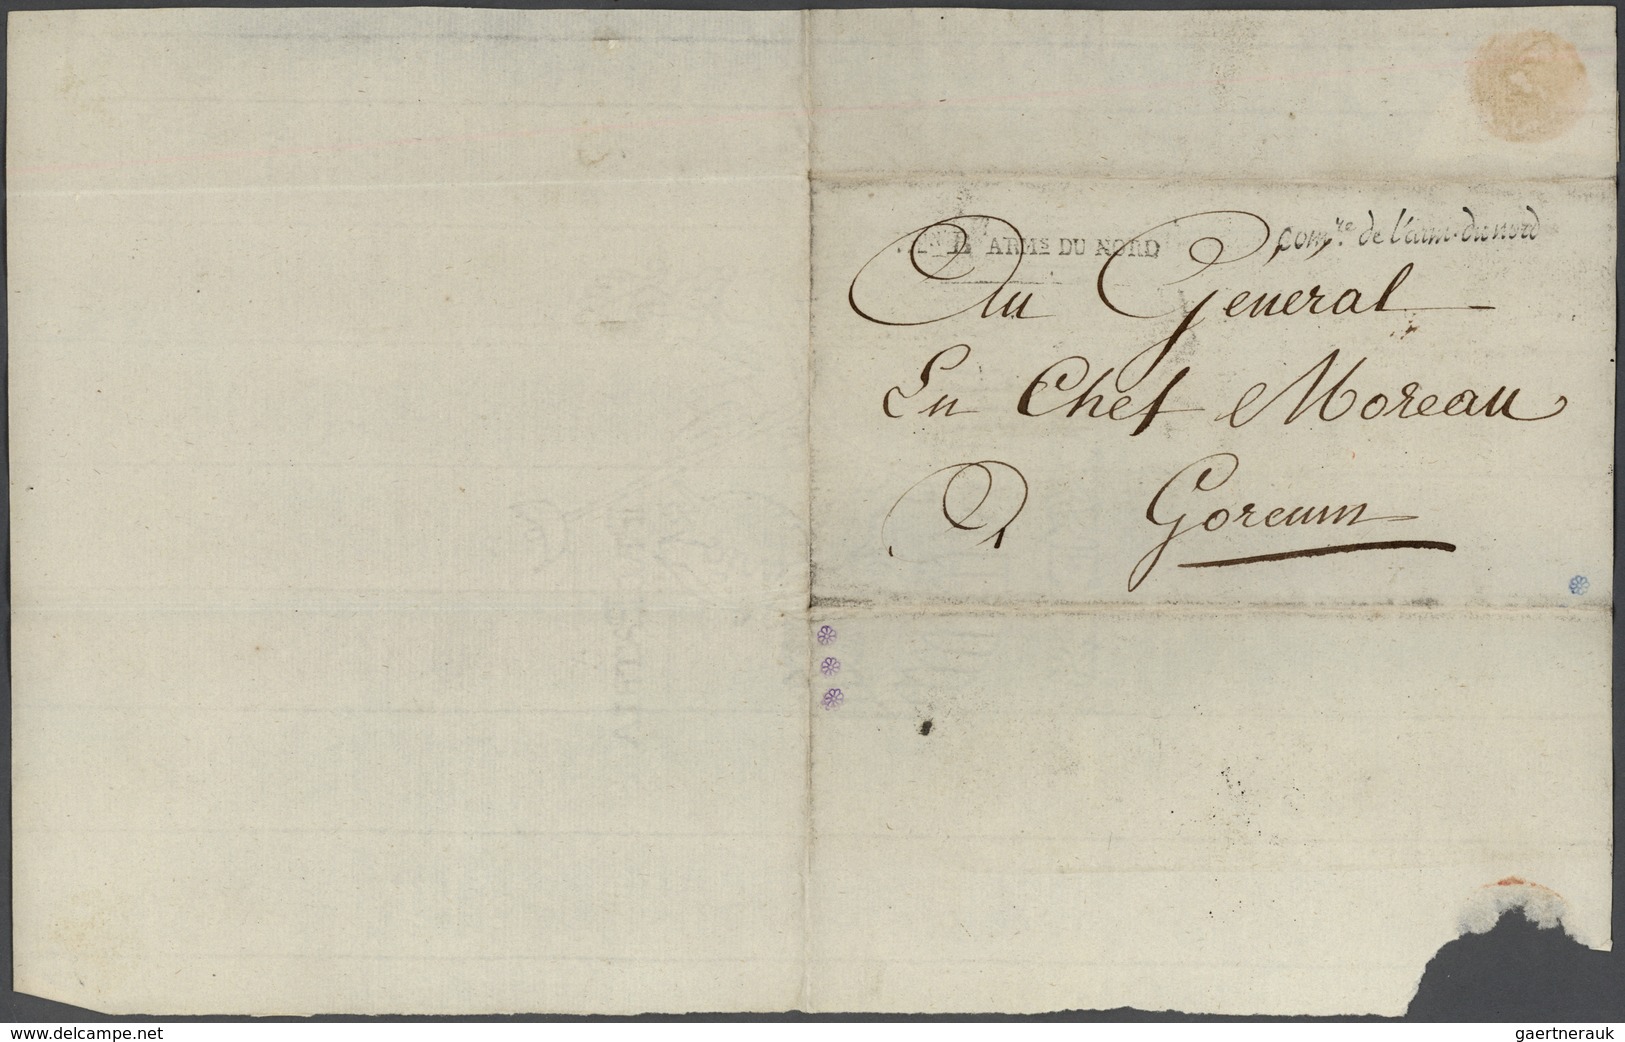 ARMs DU NORD
comre. de l'arm. du nord
Au General
En Chef Moreau
A Gorcum
www.delcampe.net
gaertnerauk